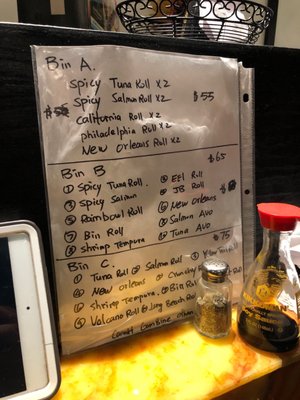 Bin A.
Spicy Tuna Roll x2
Spicy Salmon Roll x2
$55
California Roll x2
philadelphia Roll x2
New Orleans Roll x2
$65
Bin B
① Spicy Tuna Roll. ② EEl Roll
③ Spicy Salmon ④ JB Roll
⑤ Rainbow Roll ⑥ New Orleans
⑦ Bin Roll ⑧ Salmon Avo
⑨ shrimp Tempura ⑩ Tuna Avo
$75
Bin C.
① Tuna Roll ② Salmon Roll
④ New Orleans
shrimp Tempura Bin Roll
Volcano Roll Long Beach Roll
Cannot Combine